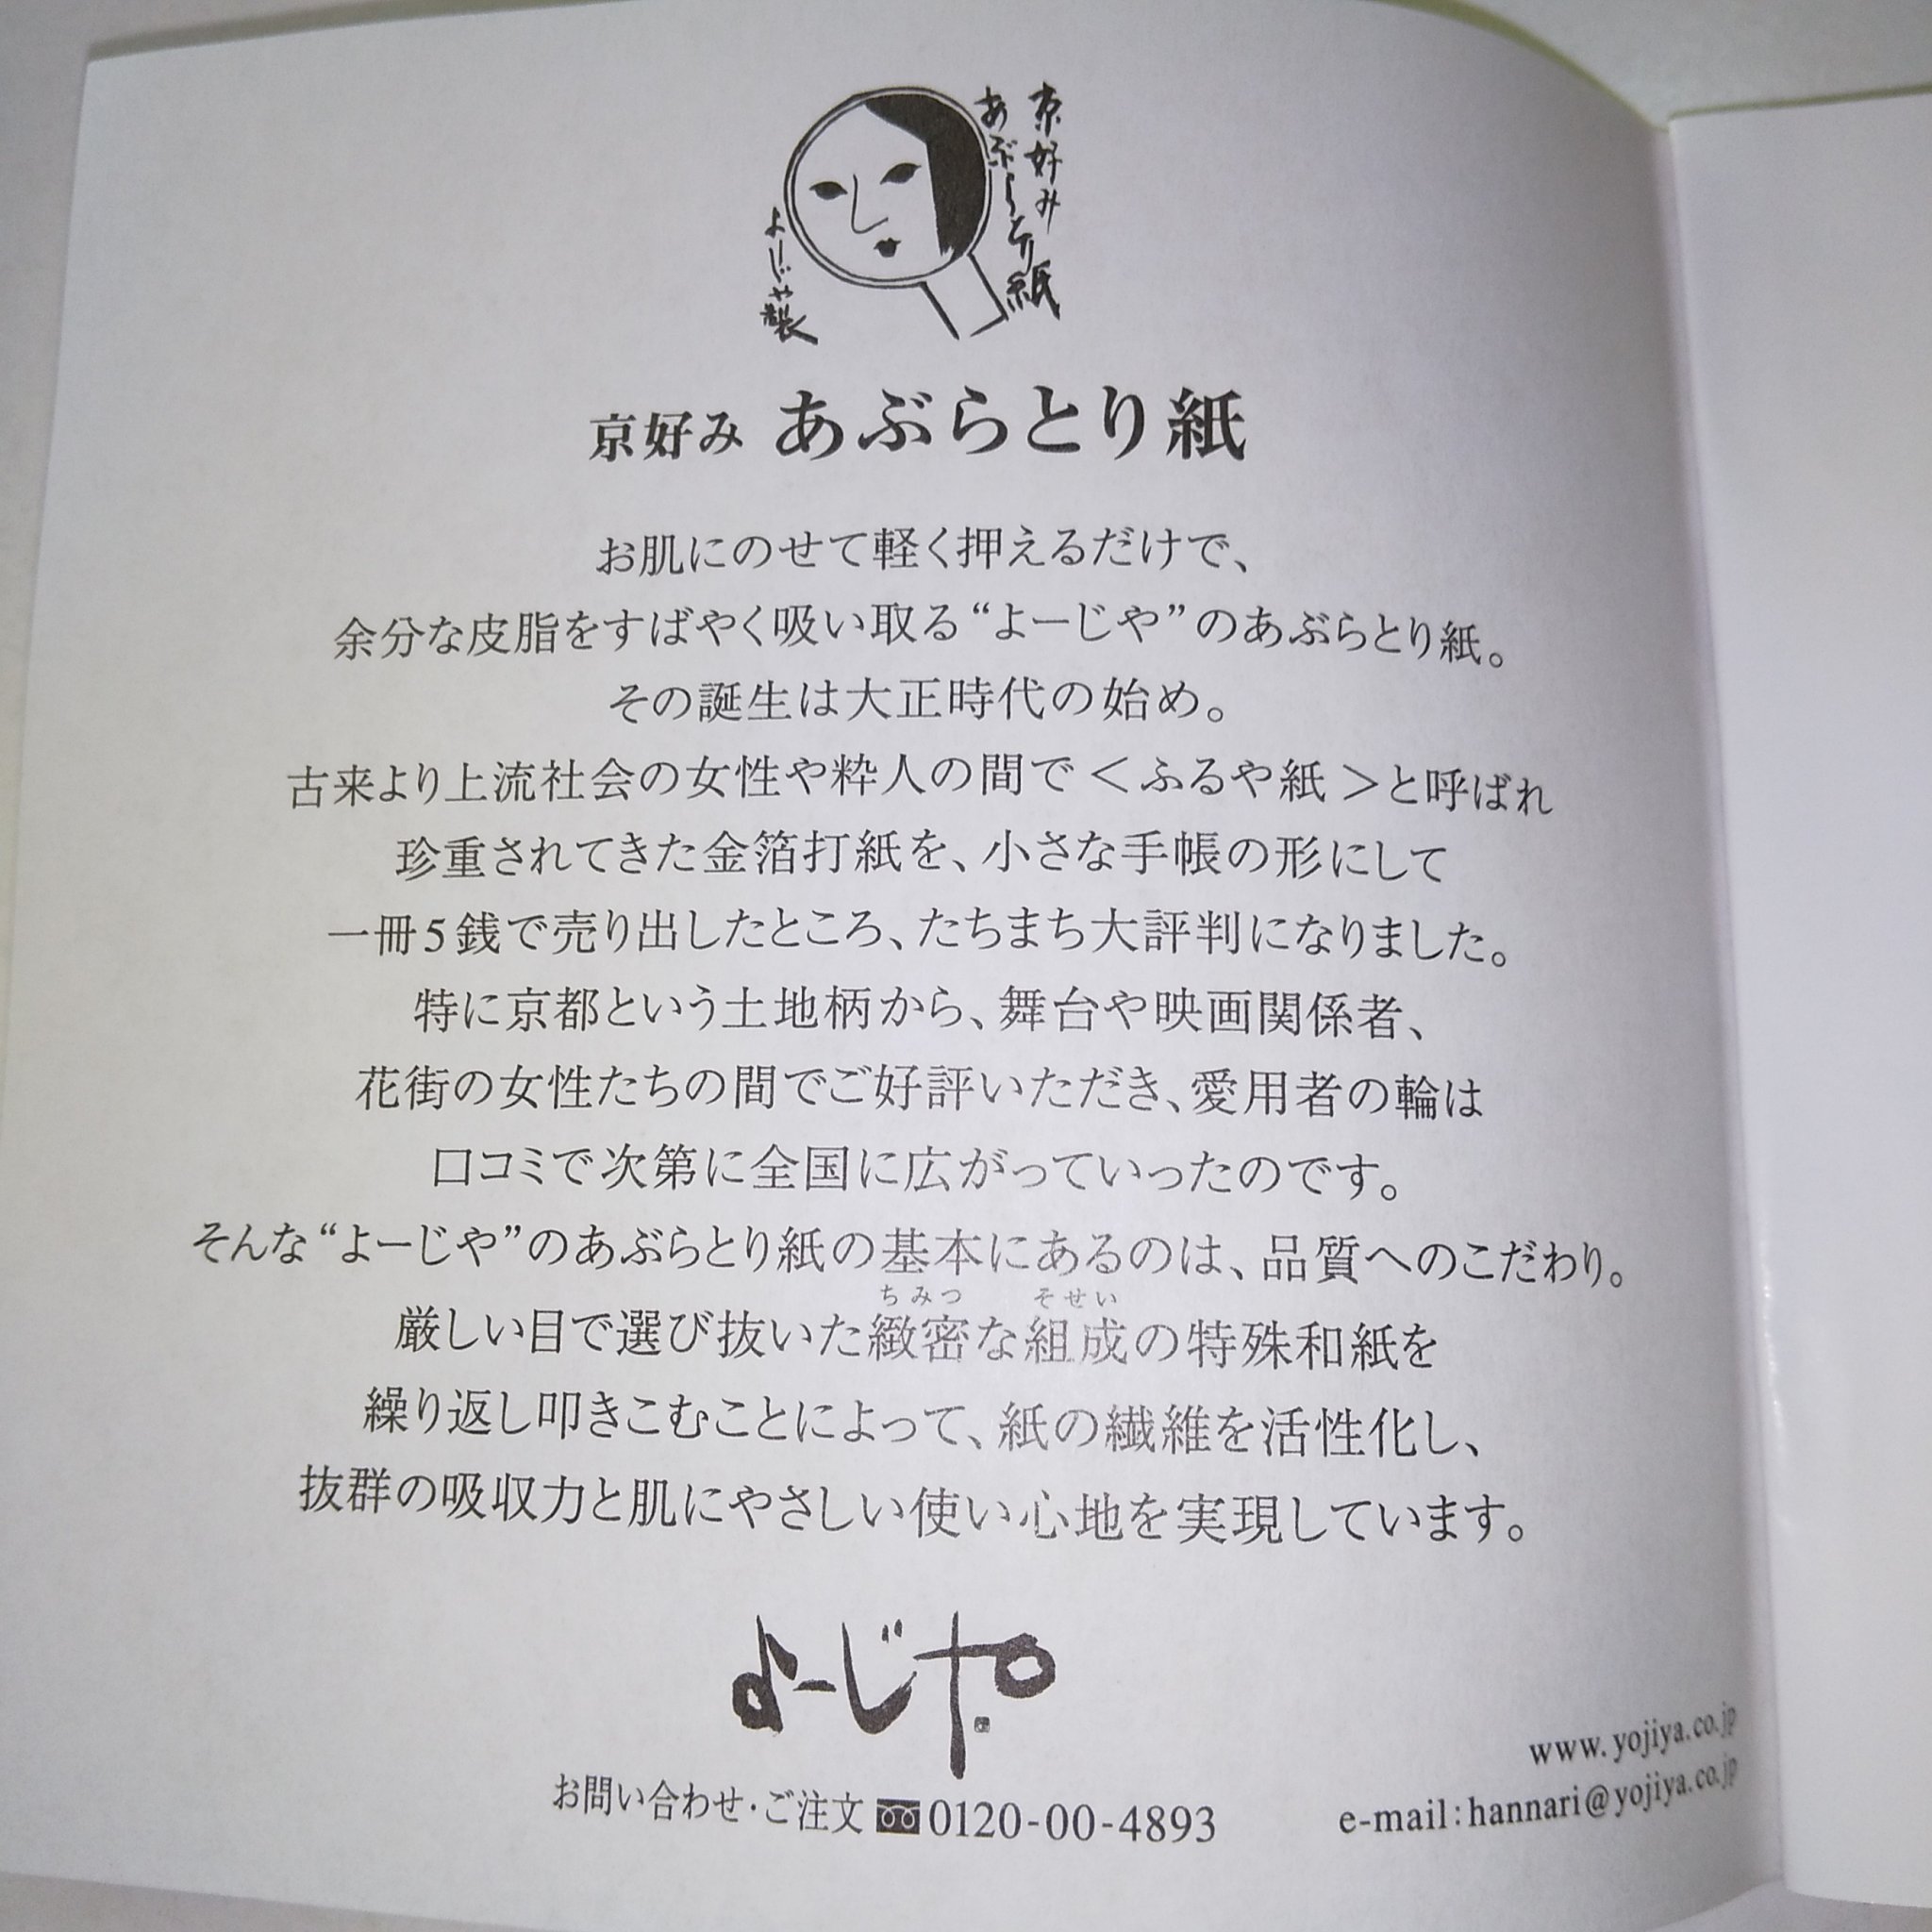 京好み
あぶらとり紙
よーじや製
京好み あぶらとり紙
お肌にのせて軽く押えるだけで、
余分な皮脂をすばやく吸い取る“よーじや”のあぶらとり紙。
その誕生は大正時代の始め。
古来より上流社会の女性や粋人の間で＜ふるや紙＞と呼ばれ
珍重されてきた金箔打紙を、小さな手帳の形にして
一冊5銭で売り出したところ、たちまち大評判になりました。
特に京都という土地柄から、舞台や映画関係者、
花街の女性たちの間でご好評いただき、愛用者の輪は
口コミで次第に全国に広がっていったのです。
そんな“よーじや”のあぶらとり紙の基本にあるのは、品質へのこだわり。
ちみつ そせい
厳しい目で選び抜いた緻密な組成の特殊和紙を
繰り返し叩きこむことによって、紙の繊維を活性化し、
抜群の吸収力と肌にやさしい使い心地を実現しています。
よーじや
www.yojiya.co.jp
お問い合わせ・ご注文 0120-00-4893
e-mail:hannari@yojiya.co.jp